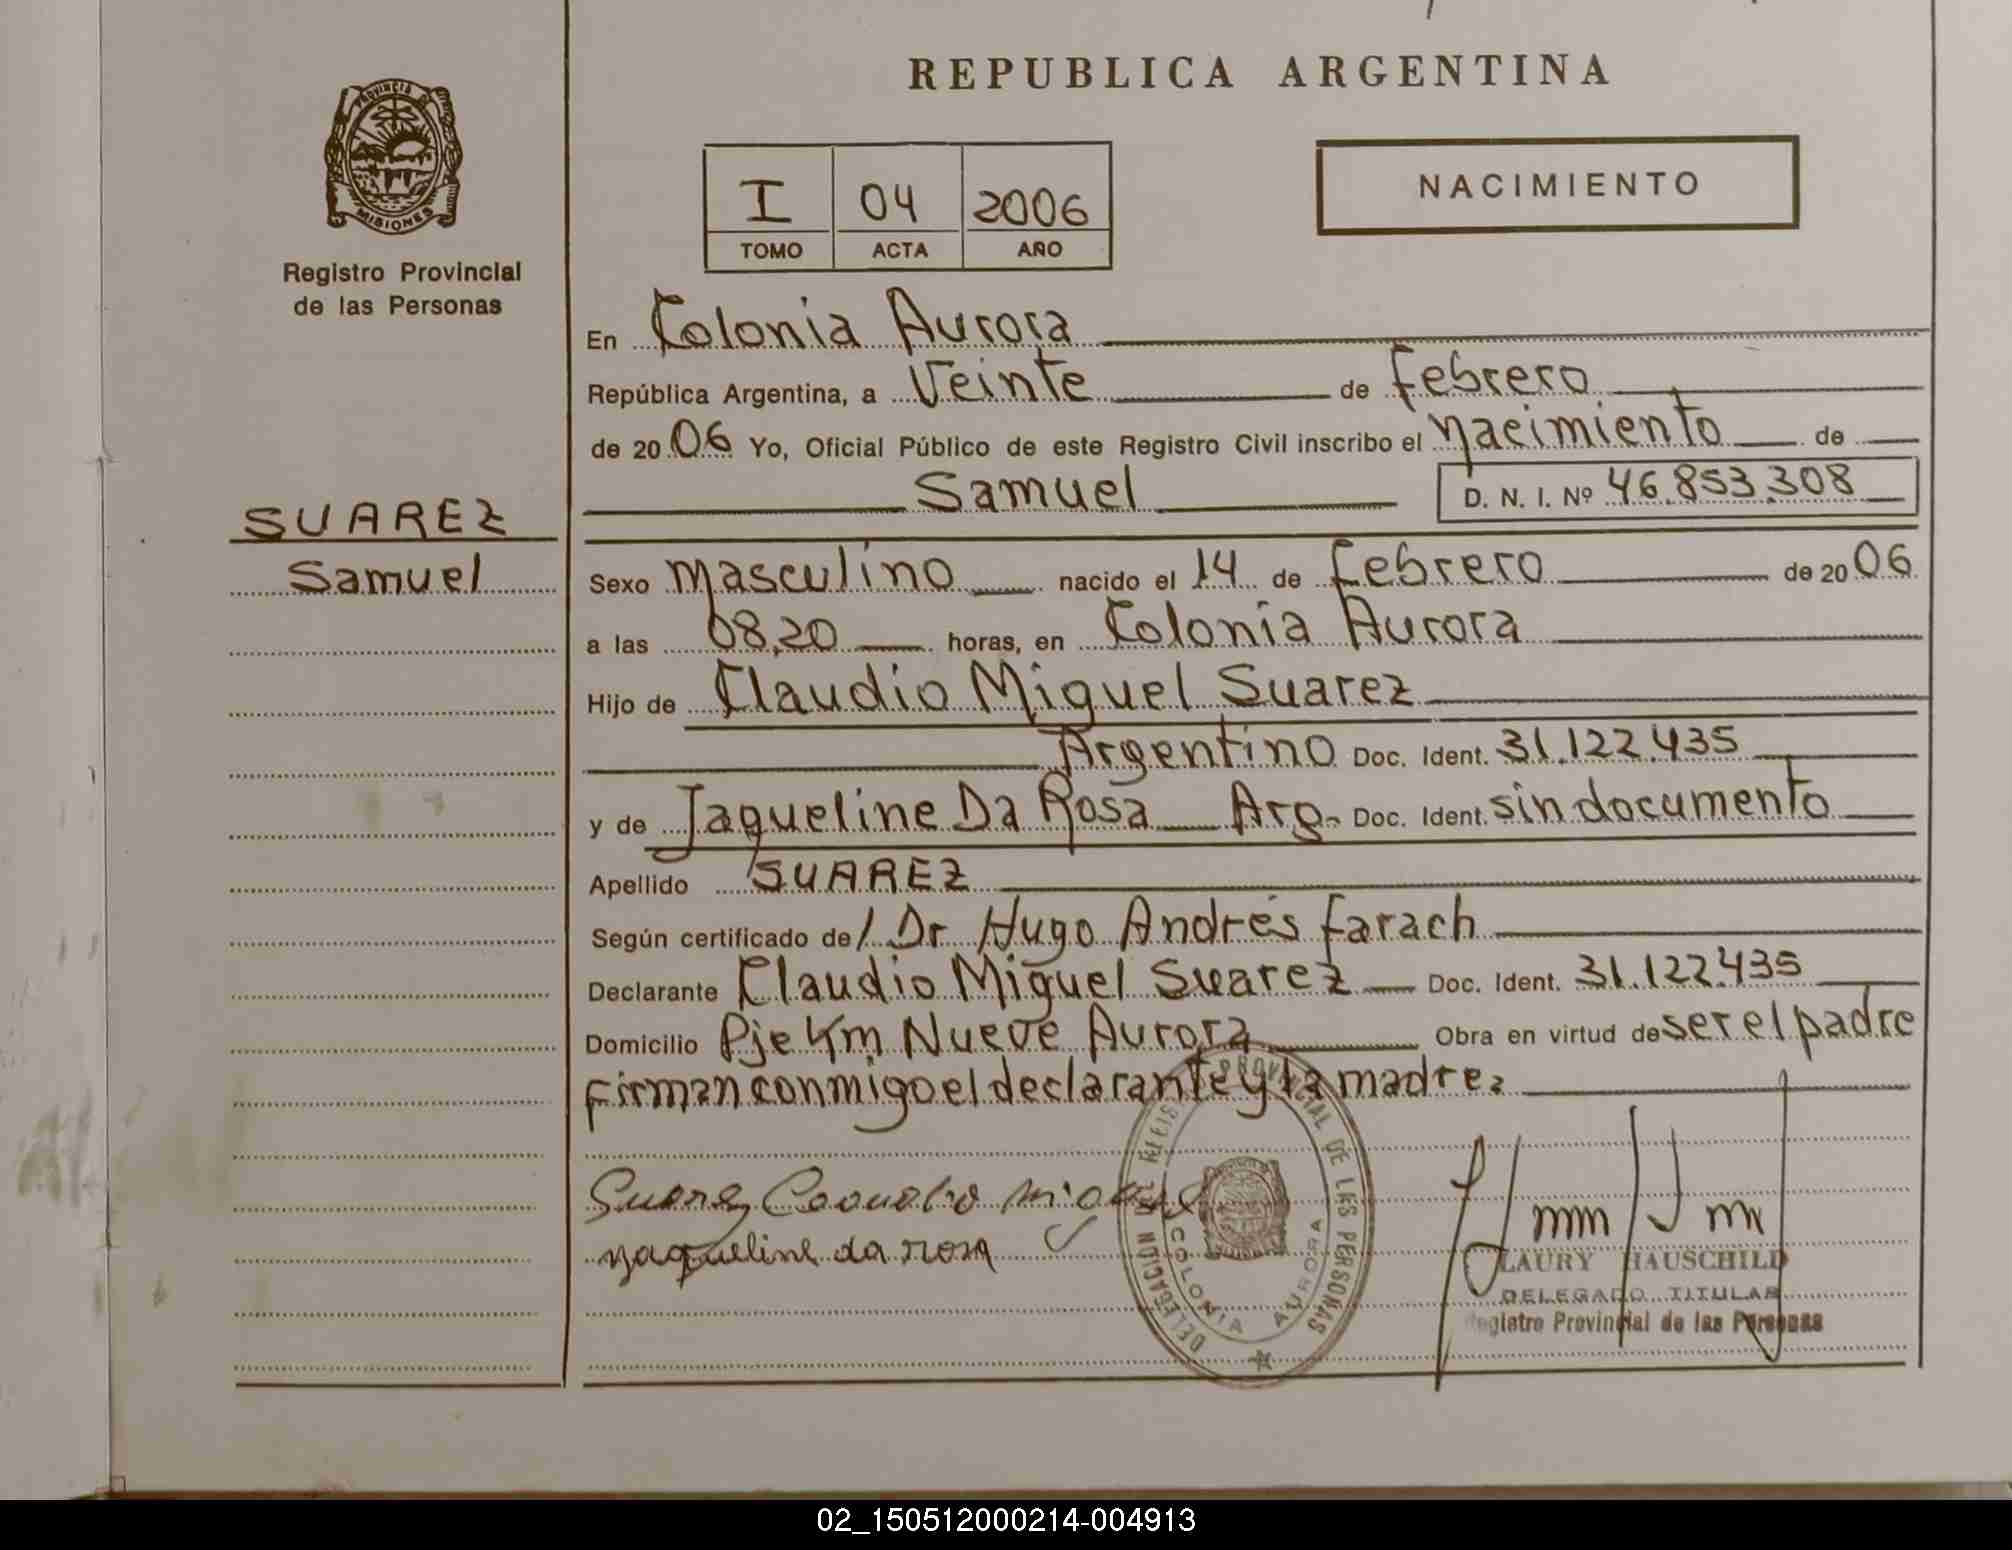 REPUBLICA ARGENTINA
PROVINCIA DE
MISIONES
Registro Provincial
de las Personas
I 04 2006
TOMO ACTA AÑO
NACIMIENTO
En Colonia Aurora
República Argentina, a Veinte de Febrero
de 2006 Yo, Oficial Público de este Registro Civil inscribo el nacimiento de
Samuel D. N. I. Nº 46.853.308
SUAREZ
Samuel
Sexo masculino nacido el 14 de Febrero de 2006
a las 08,20 horas, en Colonia Aurora
Hijo de Claudio Miguel Suarez
Argentino Doc. Ident. 31.122.435
y de Jaqueline Da Rosa Arg. Doc. Ident. sin documento
Apellido SUAREZ
Según certificado de/ Dr Hugo Andrés Farach
Declarante Claudio Miguel Suarez Doc. Ident. 31.122.435
Domicilio Pje Km Nueve Aurora Obra en virtud de ser el padre
Firman conmigo el declarante y la madre.
Suarez Miguel
yaqueline da rosa
DELEGACION DEL REGISTRO PROVINCIAL DE LAS PERSONAS
COLONIA AURORA
LAURY HAUSCHILD
DELEGADO TITULAR
Registro Provincial de las Personas
02_150512000214-004913